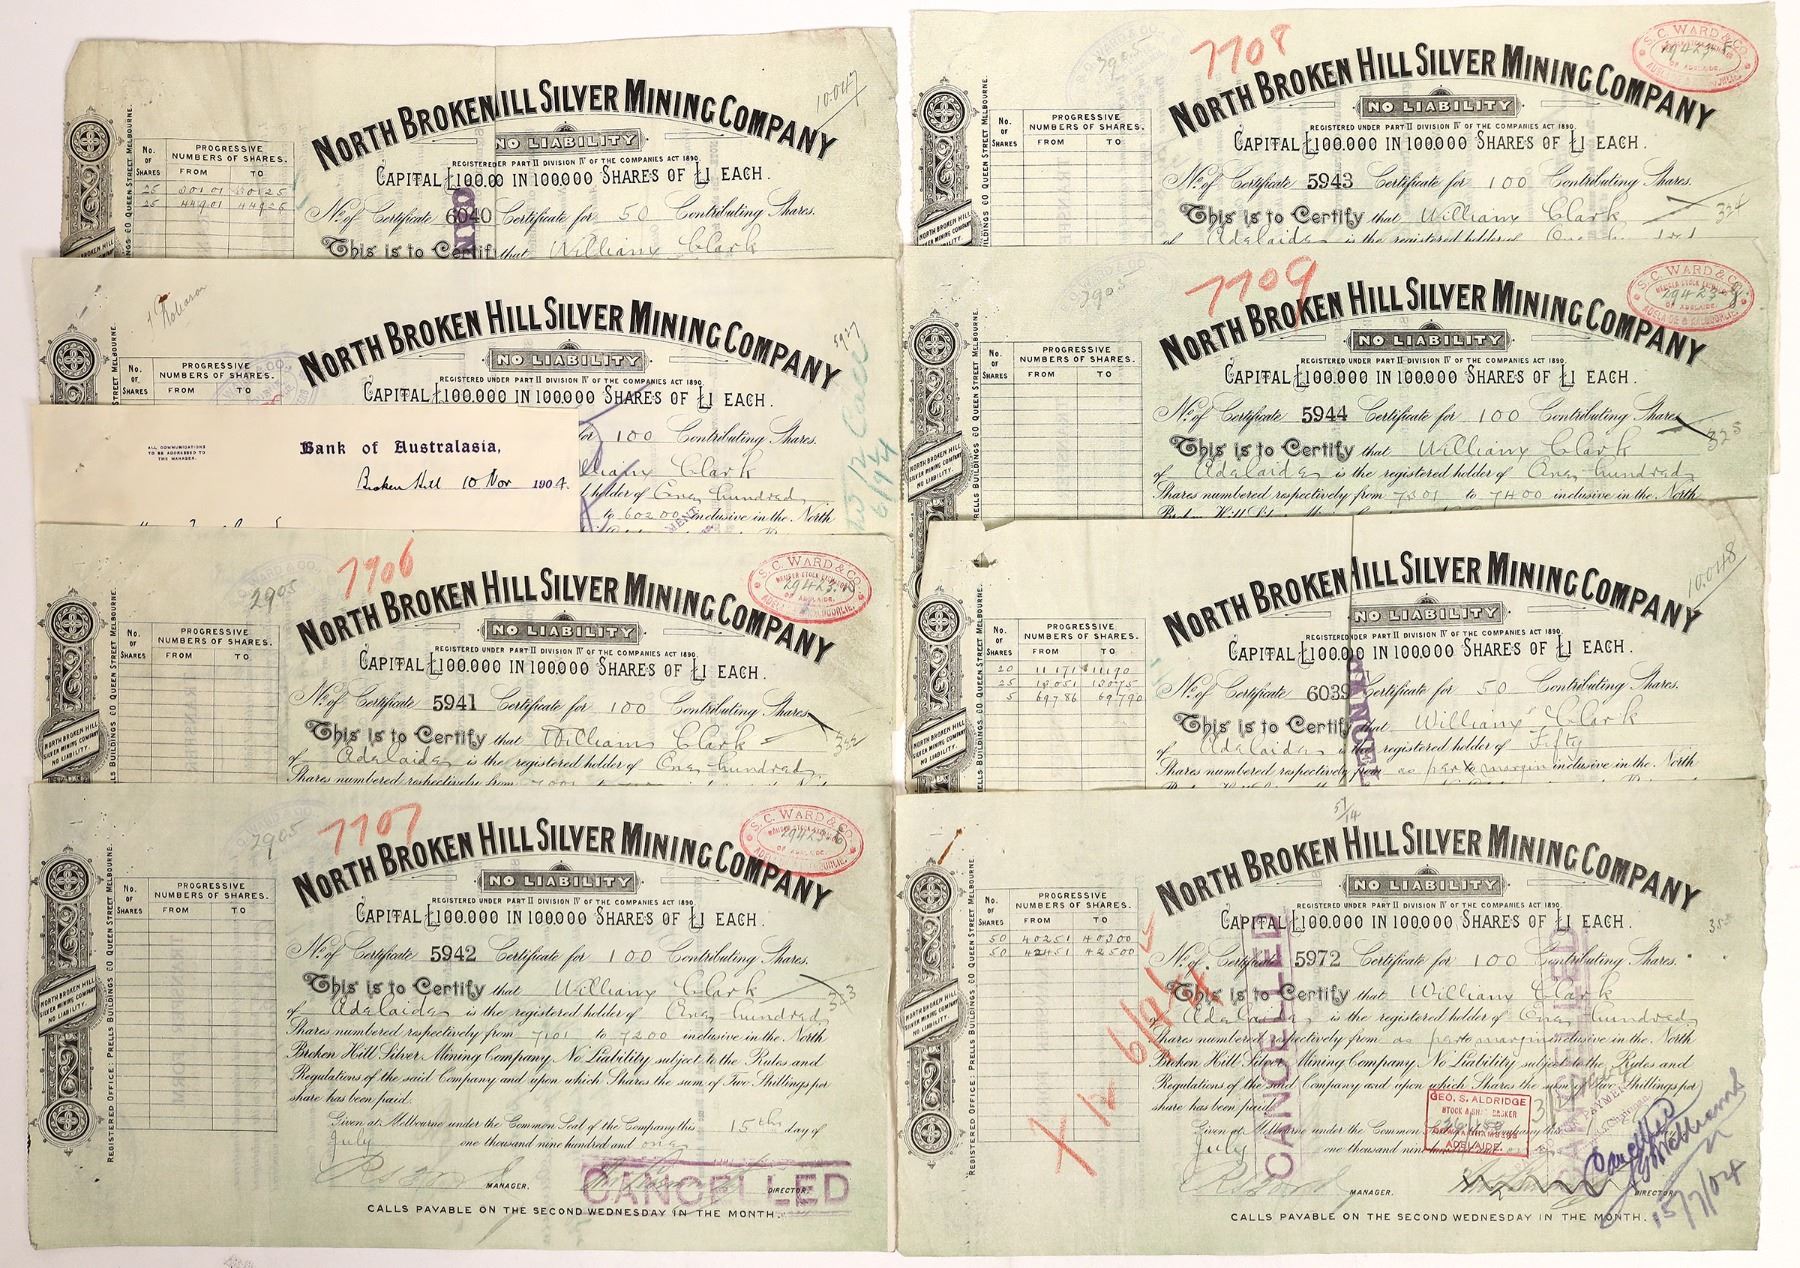 10.047
NORTH BROKEN HILL SILVER MINING COMPANY
NO LIABILITY
REGISTERED UNDER PART II DIVISION IV OF THE COMPANIES ACT 1890.
CAPITAL £100.000 IN 100000 SHARES OF £1 EACH.
No. OF SHARES
PROGRESSIVE NUMBERS OF SHARES.
FROM TO
25 44901 44925
No. of Certificate 6040 Certificate for 50 Contributing Shares.
This is to Certify that William Clark
NORTH BROKEN HILL SILVER MINING COMPANY
NO LIABILITY
REGISTERED UNDER PART II DIVISION IV OF THE COMPANIES ACT 1890.
CAPITAL £100.000 IN 100000 SHARES OF £1 EACH.
No. OF SHARES
PROGRESSIVE NUMBERS OF SHARES.
FROM TO
for 100 Contributing Shares.
William Clark
holder of One hundred
to 60200 inclusive in the North
ALL COMMUNICATIONS
TO BE ADDRESSED TO
THE MANAGER.
Bank of Australasia,
Broken Hill 10 Nov 1904.
7706
2905
S. C. WARD & CO.
NORTH BROKEN HILL SILVER MINING COMPANY
NO LIABILITY
REGISTERED UNDER PART II DIVISION IV OF THE COMPANIES ACT 1890.
CAPITAL £100.000 IN 100000 SHARES OF £1 EACH.
No. OF SHARES
PROGRESSIVE NUMBERS OF SHARES.
FROM TO
No. of Certificate 5941 Certificate for 100 Contributing Shares
This is to Certify that William Clark
322
of Adelaide is the registered holder of One hundred
Shares numbered respectively from
7707
2905
S. C. WARD & CO.
NORTH BROKEN HILL SILVER MINING COMPANY
NO LIABILITY
REGISTERED UNDER PART II DIVISION IV OF THE COMPANIES ACT 1890.
CAPITAL £100.000 IN 100000 SHARES OF £1 EACH.
No. OF SHARES
PROGRESSIVE NUMBERS OF SHARES.
FROM TO
No. of Certificate 5942 Certificate for 100 Contributing Shares.
This is to Certify that William Clark
323
of Adelaide is the registered holder of One hundred
Shares numbered respectively from 7101 to 7200 inclusive in the North
Broken Hill Silver Mining Company No Liability subject to the Rules and
Regulations of the said Company and upon which Shares the sum of Two Shillings per
share has been paid.
Given at Melbourne under the Common Seal of the Company this 15th day of
July one thousand nine hundred and one
MANAGER. DIRECTOR.
CANCELLED
CALLS PAYABLE ON THE SECOND WEDNESDAY IN THE MONTH.
NORTH BROKEN HILL SILVER MINING COMPANY NO LIABILITY.
REGISTERED OFFICE: PRELLS BUILDINGS 60 QUEEN STREET MELBOURNE.
7708
S. C. WARD & CO.
NORTH BROKEN HILL SILVER MINING COMPANY
NO LIABILITY
REGISTERED UNDER PART II DIVISION IV OF THE COMPANIES ACT 1890.
CAPITAL £100.000 IN 100000 SHARES OF £1 EACH.
No. OF SHARES
PROGRESSIVE NUMBERS OF SHARES.
FROM TO
No. of Certificate 5943 Certificate for 100 Contributing Shares.
This is to Certify that William Clark
324
of Adelaide is the registered holder of
7709
2905
S. C. WARD & CO.
NORTH BROKEN HILL SILVER MINING COMPANY
NO LIABILITY
REGISTERED UNDER PART II DIVISION IV OF THE COMPANIES ACT 1890.
CAPITAL £100.000 IN 100000 SHARES OF £1 EACH.
No. OF SHARES
PROGRESSIVE NUMBERS OF SHARES.
FROM TO
No. of Certificate 5944 Certificate for 100 Contributing Shares
This is to Certify that William Clark
325
of Adelaide is the registered holder of One hundred
Shares numbered respectively from 7301 to 7400 inclusive in the North
10.048
NORTH BROKEN HILL SILVER MINING COMPANY
NO LIABILITY
REGISTERED UNDER PART II DIVISION IV OF THE COMPANIES ACT 1890.
CAPITAL £100.000 IN 100000 SHARES OF £1 EACH.
No. OF SHARES
PROGRESSIVE NUMBERS OF SHARES.
FROM TO
20 11171 11190
25 18051 18075
5 69786 69790
No. of Certificate 6039 Certificate for 50 Contributing Shares.
This is to Certify that William Clark
of Adelaide is the registered holder of Fifty
Shares numbered respectively from as per margin inclusive in the North
NORTH BROKEN HILL SILVER MINING COMPANY
NO LIABILITY
REGISTERED UNDER PART II DIVISION IV OF THE COMPANIES ACT 1890.
CAPITAL £100.000 IN 100000 SHARES OF £1 EACH.
No. OF SHARES
PROGRESSIVE NUMBERS OF SHARES.
FROM TO
50 40251 40300
50 42451 42500
No. of Certificate 5972 Certificate for 100 Contributing Shares.
This is to Certify that William Clark
of Adelaide is the registered holder of One hundred
Shares numbered respectively from as per margin inclusive in the North
Broken Hill Silver Mining Company No Liability subject to the Rules and
Regulations of the said Company and upon which Shares the sum of two Shillings per
share has been paid
GEO. S. ALDRIDGE
STOCK & SHARE BROKER
ADELAIDE
Given at Melbourne under the Common
July one thousand nine
MANAGER. DIRECTOR
CANCELLED
CANCELLED
Cancelled
15/7/04
CALLS PAYABLE ON THE SECOND WEDNESDAY IN THE MONTH.
NORTH BROKEN HILL SILVER MINING COMPANY NO LIABILITY.
REGISTERED OFFICE: PRELLS BUILDINGS 60 QUEEN STREET MELBOURNE.